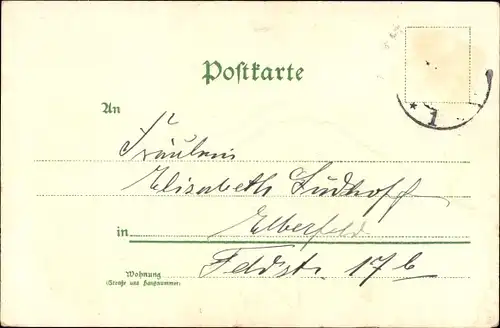 Postkarte
* 1
An
Fräulein
Elisabeth Südhoff
in Elberfeld
Feldstr. 17b
Wohnung
(Straße und Hausnummer)